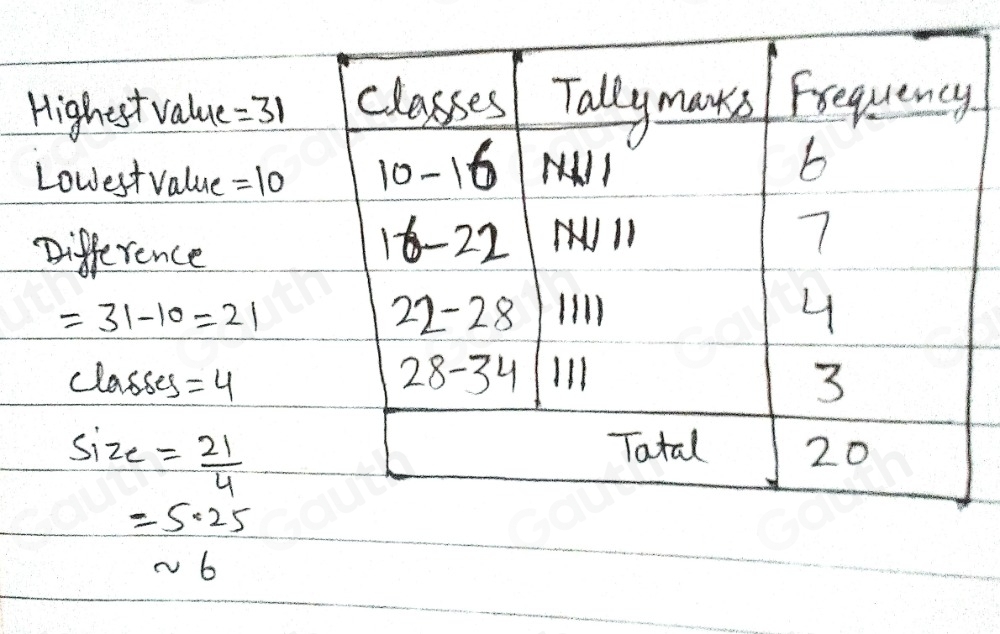 Highest value = 31
Lowest value = 10
Difference
= 31-10 = 21
Classes = 4
Size = 21/4
= 5.25
~ 6
Classes Tally marks Frequency
10-16 |||| | 6
16-22 |||| || 7
22-28 |||| 4
28-34 ||| 3
Tatal 20